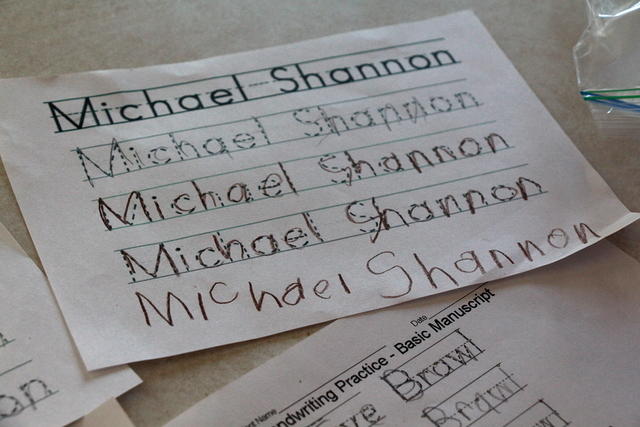 Michael Shannon
Michael Shannon
Michael Shannon
Michael Shannon
Michael Shannon
on
Date
Name
ndwriting Practice - Basic Manuscript
Brawl
Brawl